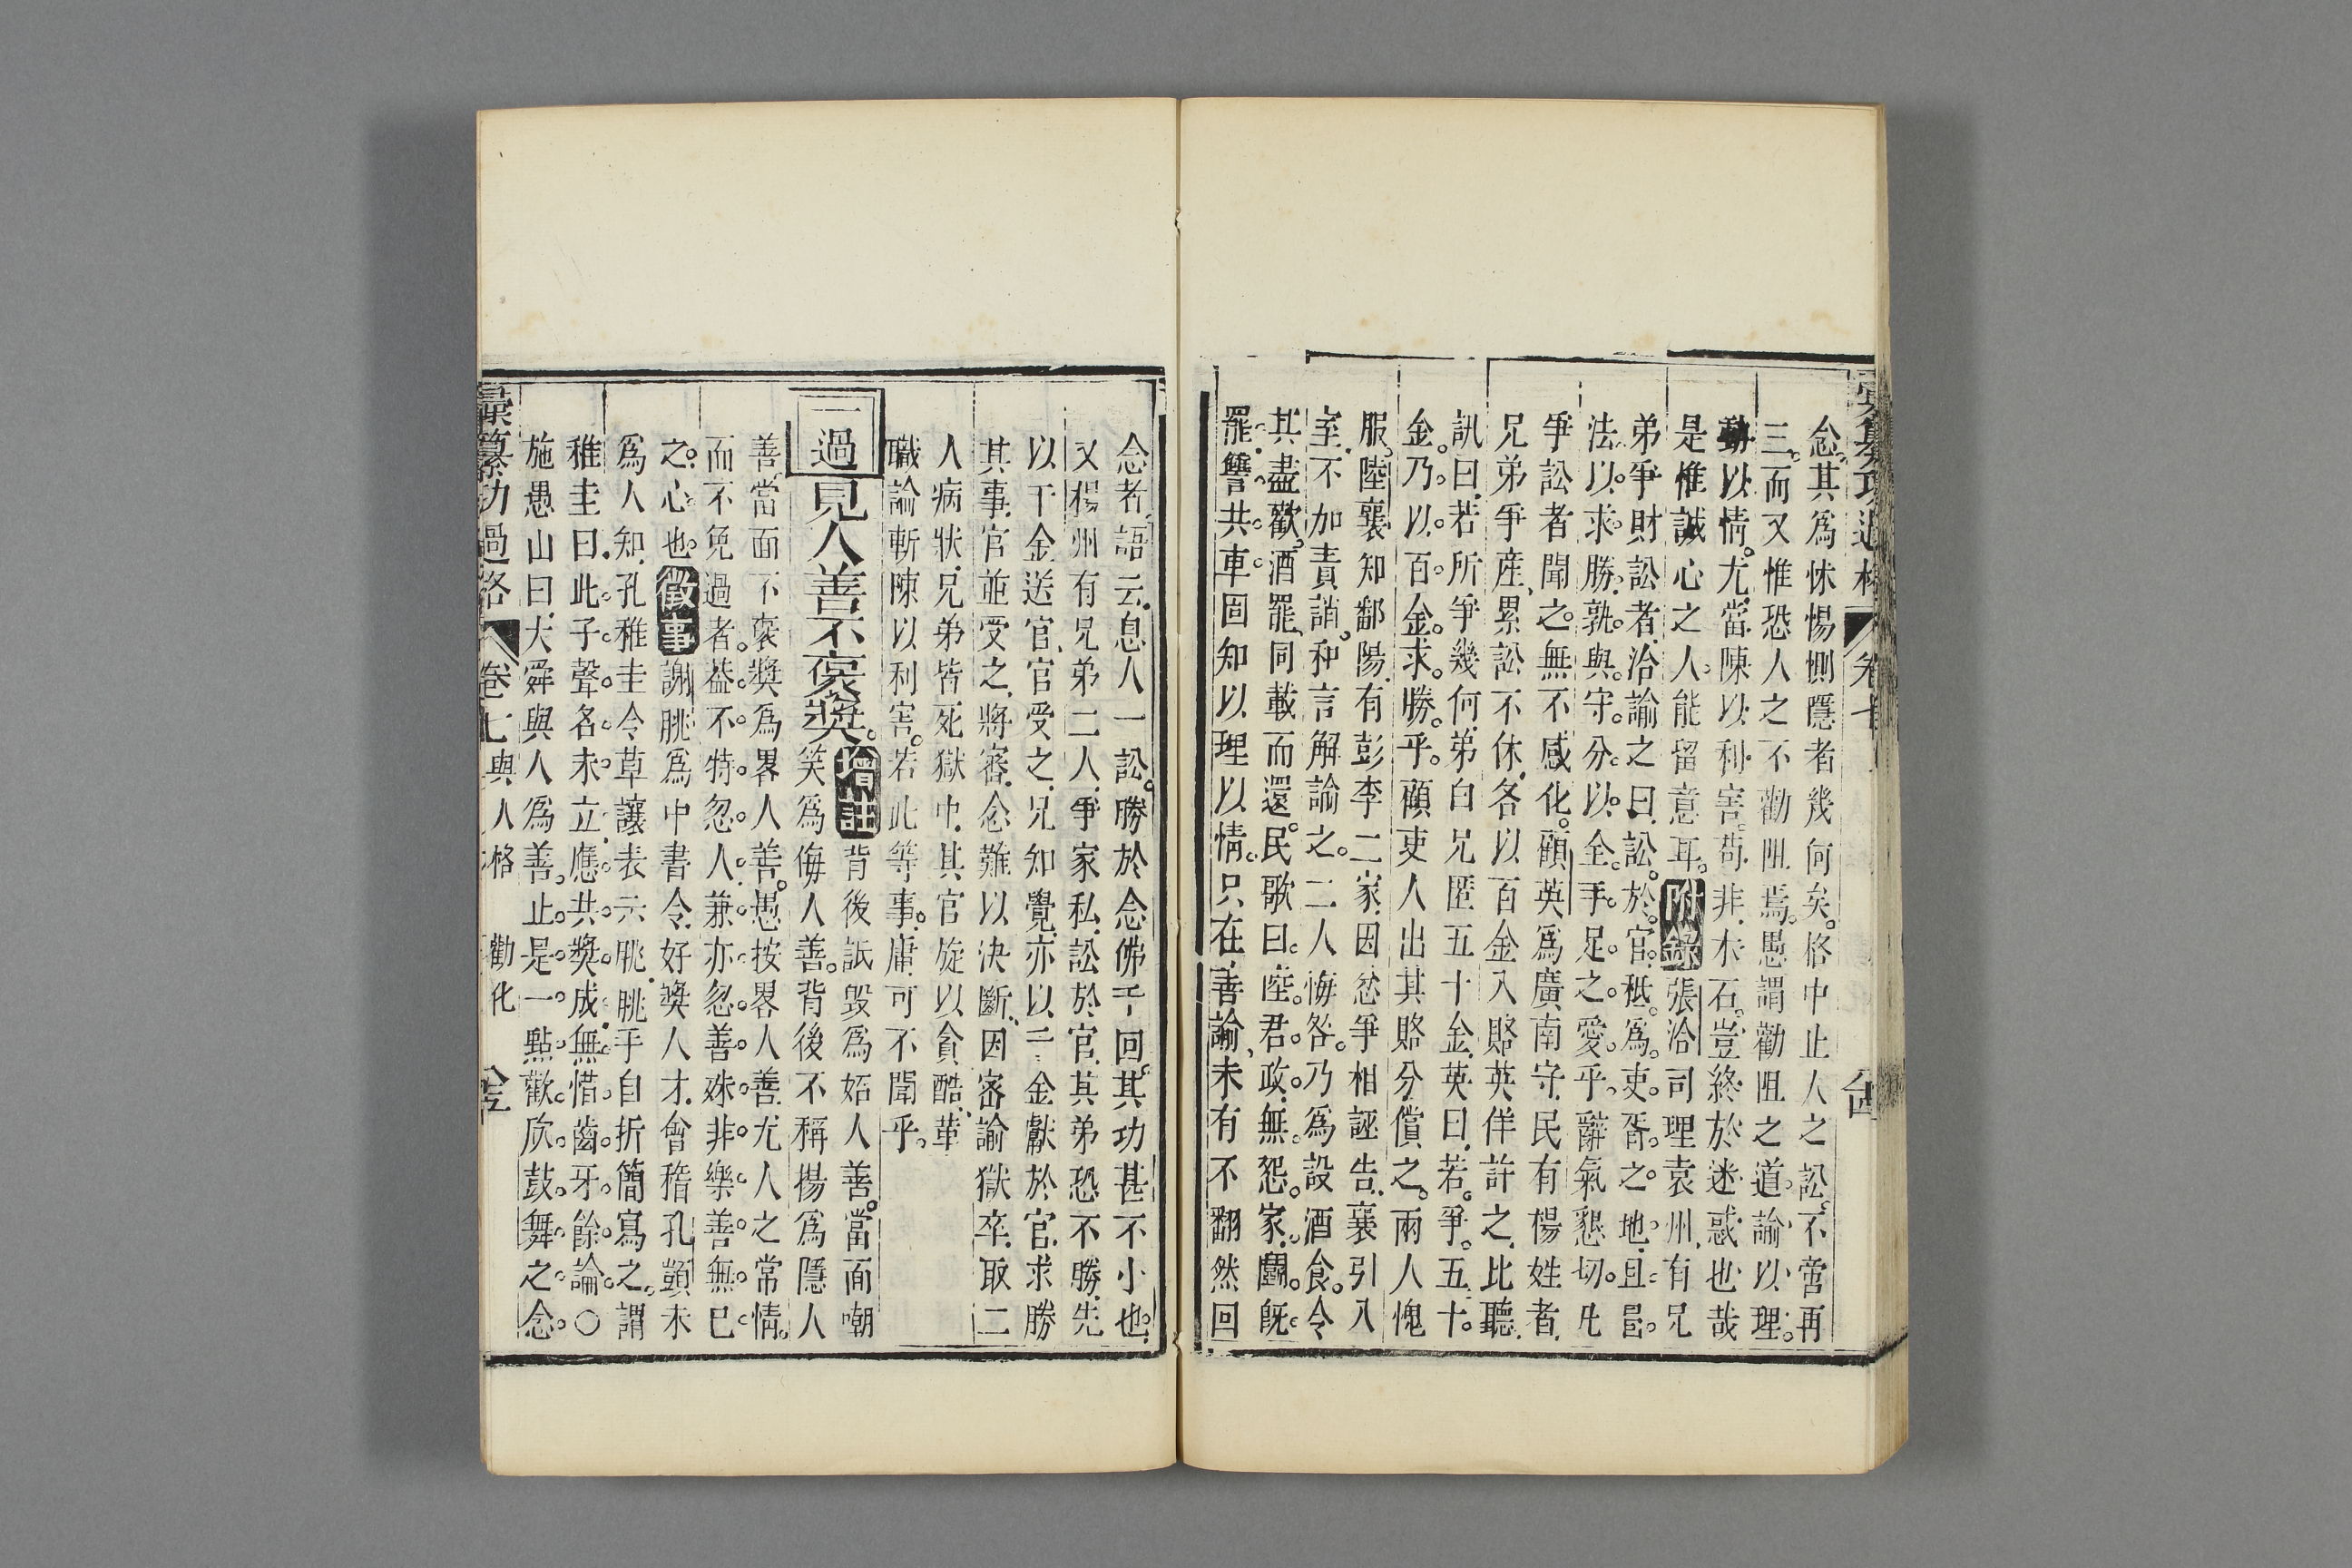 彙纂功過格 卷七 八四
念其爲怵惕惻隱者幾何矣。格中止人之訟。不啻再
三。而又惟恐人之不勸阻焉。愚謂勸阻之道。諭以理。
動以情。尤當陳以利害。苟非木石。豈終於迷惑也哉
是惟誠心之人。能留意耳。附錄張洽司理袁州。有兄
弟爭財訟者。洽諭之曰。訟於官。秪爲吏胥之地。且冒
法以求勝。孰與守分以全手足之愛乎。辭氣懇切。凡
爭訟者聞之。無不感化。顧英爲廣南守。民有楊姓者。
兄弟爭產。累訟不休。各以百金入賂。英佯許之。比聽
訊曰。若所爭幾何。弟白兄匿五十金。英曰。若爭五十
金。乃以百金求勝乎。顧吏人出其賂分償之。兩人愧
服。陸襄知鄱陽。有彭李二家。因忿爭相誣告。襄引入
室。不加責誚。和言解諭之。二人悔咎。乃爲設酒食。令
其盡歡。酒罷。同載而還。民歌曰。陸君政。無怨家。鬬既
罷。讐共車。固知以理以情。只在善諭。未有不翻然回
念者。語云。息人一訟。勝於念佛千回。其功甚不小也。
又楊州有兄弟二人。爭家私。訟於官。其弟恐不勝。先
以千金送官。官受之。兄知覺。亦以二千金獻於官。求勝
其事。官並受之。將審。念難以決斷。因密諭獄卒。取二
人病狀。兄弟皆死獄中。其官旋以貪酷革
職論斬。陳以利害。若此等事。庸可不聞乎。
一過見人善不褒獎。增註背後詆毀爲妬人善。當面嘲
笑爲侮人善。背後不稱揚爲隱人
善。當面不褒獎爲畧人善。愚按畧人善。尤人之常情。
而不免過者。葢不特忽人。兼亦忽善。殊非樂善無已
之心也。徵事謝朓爲中書令。好獎人才。會稽孔顗未
爲人知。孔稚圭令草讓表示朓。朓手自折簡寫之。謂
稚圭曰。此子聲名未立。應共獎成。無惜齒牙餘論。○
施愚山曰。大舜與人爲善。止是一點歡欣鼓舞之念。
彙纂功過格 卷七 與人格 勸化 八五